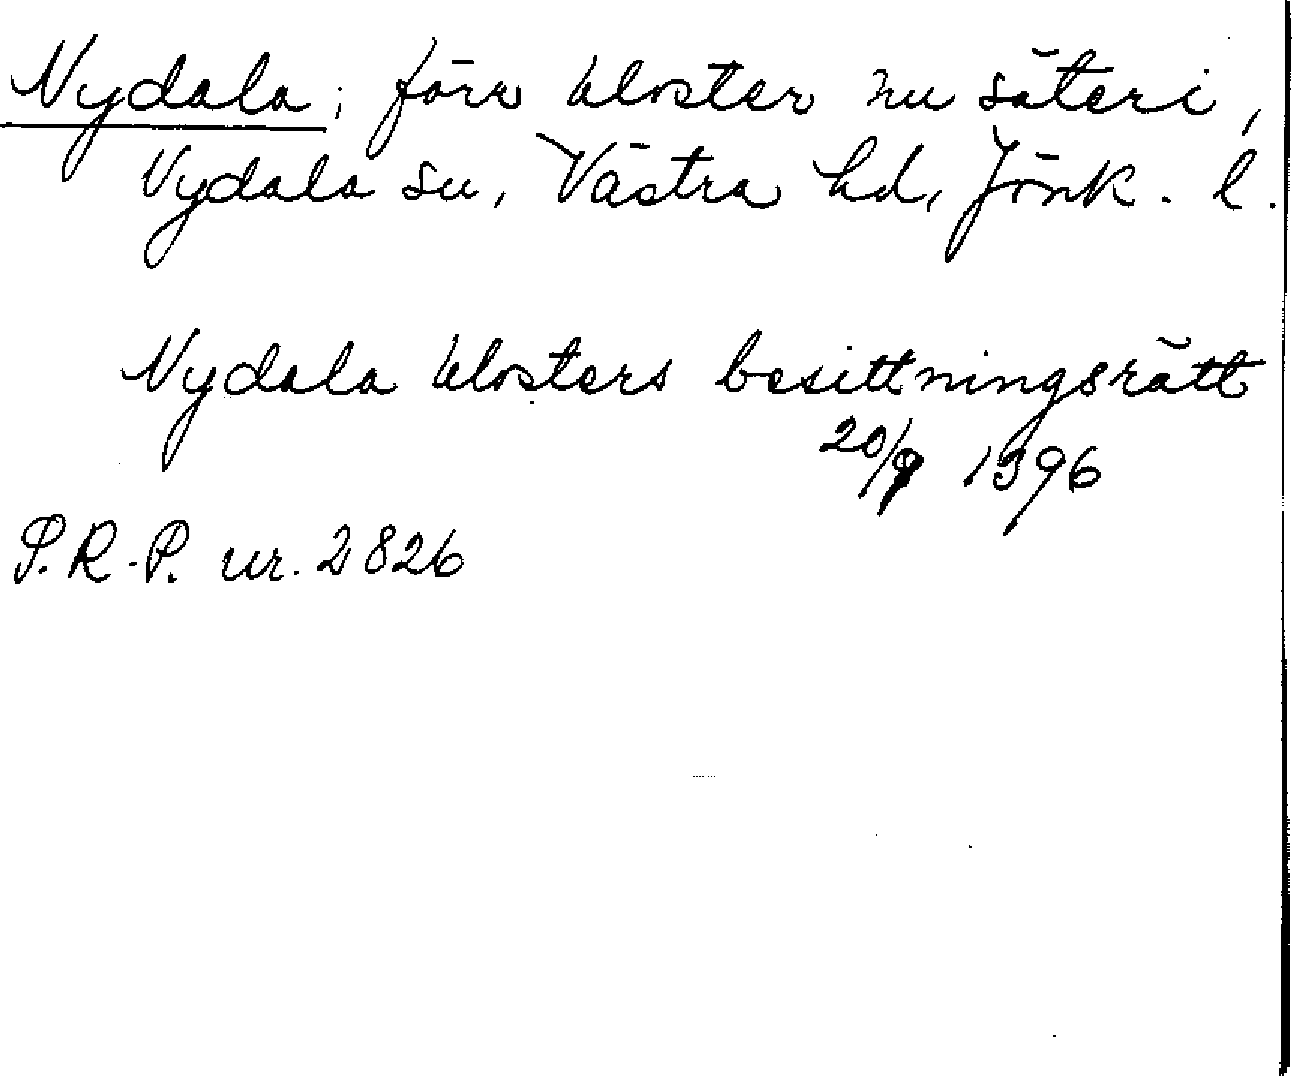 Nydala; förr kloster nu säteri,
Nydala sn, Västra hd, Jönk. l.
Nydala klosters besittningsrätt
20/9 1396
S.R.P. nr. 2826